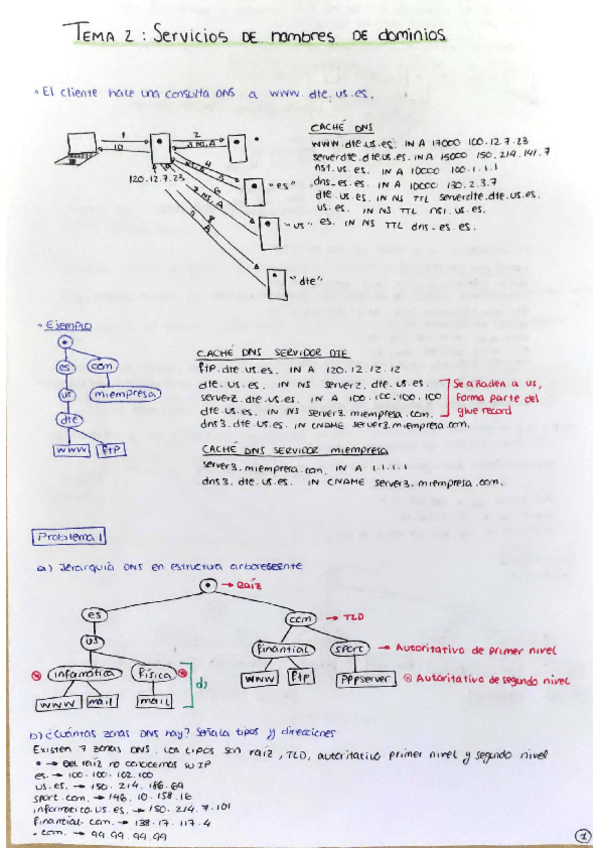 TEMA 2: Servicios DE nombres DE dominios
• El cliente hace una consulta DNS a www.dte.us.es.
1
10
2
3 NS, A
4
5
6
7 NS, A
8
9 A
120.12.7.23
•
"es"
"us"
"dte"
CACHÉ DNS
www.dte.us.es. IN A 17000 100.12.7.23
serverdte.dte.us.es. IN A 15000 150.214.141.7
ns1.us.es. IN A 10000 100.1.1.1
dns_es.es. IN A 10000 130.2.3.7
dte.us.es. IN NS TTL serverdte.dte.us.es.
us.es. IN NS TTL ns1.us.es.
es. IN NS TTL dns-es.es.
• Ejemplo
es
com
us
miempresa
dte
www
ftp
CACHÉ DNS SERVIDOR DTE
ftp.dte.us.es. IN A 120.12.12.12
dte.us.es. IN NS server2.dte.us.es.
server2.dte.us.es. IN A 100.100.100.100
dte.us.es. IN NS server3.miempresa.com.
dns3.dte.us.es. IN CNAME server3.miempresa.com.
Se añaden a us,
forma parte del
glue record
CACHÉ DNS SERVIDOR miempresa
server3.miempresa.com. IN A 1.1.1.1
dns3.dte.us.es. IN CNAME server3.miempresa.com.
Problema 1
a) Jerarquía DNS en estructura arborescente
→ Raíz
es
com → TLD
us
finantial
sport → Autoritativo de primer nivel
informática
física
d)
www
ftp
pppserver
⊗ Autoritativo de segundo nivel
www
mail
mail
b) ¿Cuántas zonas DNS hay? Señala tipos y direcciones
Existen 7 zonas DNS. Los tipos son raíz, TLD, autoritativo primer nivel y segundo nivel
• → Del raíz no conocemos su IP
es. → 100.100.102.100
us.es. → 150.214.186.69
sport.com. → 146.10.158.16
informatica.us.es. → 150.214.7.101
finantial.com. → 138.17.117.4
.com. → 99.99.99.99
1